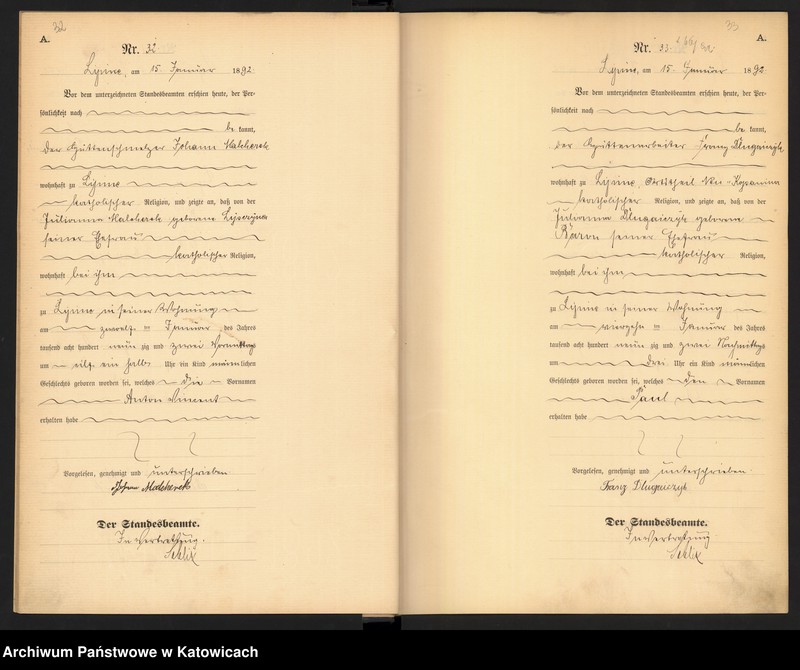 32
A.
Nr. 32
Lipine, am 15. Januar 1892.
Vor dem unterzeichneten Standesbeamten erschien heute, der Per-
sönlichkeit nach
be kannt,
der Hüttenschmelzer Johann Malcherek
wohnhaft zu Lipine
katholischer Religion, und zeigte an, daß von der
Julianna Malcherek geborene
seiner Ehefrau
katholischer Religion,
wohnhaft bei ihm
zu Lipine in seiner Wohnung
am zwoelf ten Januar des Jahres
tausend acht hundert neun zig und zwei Vormittags
um eilf ein halb Uhr ein Kind männlichen
Geschlechts geboren worden sei, welches die Vornamen
Anton Vincent
erhalten habe
Vorgelesen, genehmigt und unterschrieben
Johann Malcherek
Der Standesbeamte.
In Vertretung.
33
A.
Nr. 33.
Lipine, am 15 Januar 1892
Vor dem unterzeichneten Standesbeamten erschien heute, der Per-
sönlichkeit nach
be kannt,
der Hüttenarbeiter Franz Dlugaiczyk
wohnhaft zu Lipine, Ortstheil
katholischer Religion, und zeigte an, daß von der
Julianna Dlugaiczyk geborene
Baron seiner Ehefrau
katholischer Religion,
wohnhaft bei ihm
zu Lipine in seiner Wohnung
am vierzehn ten Januar des Jahres
tausend acht hundert neun zig und zwei Nachmittags
um drei Uhr ein Kind männlichen
Geschlechts geboren worden sei, welches den Vornamen
Paul
erhalten habe
Vorgelesen, genehmigt und unterschrieben.
Franz Dlugaiczyk
Der Standesbeamte.
In Vertretung
Archiwum Państwowe w Katowicach